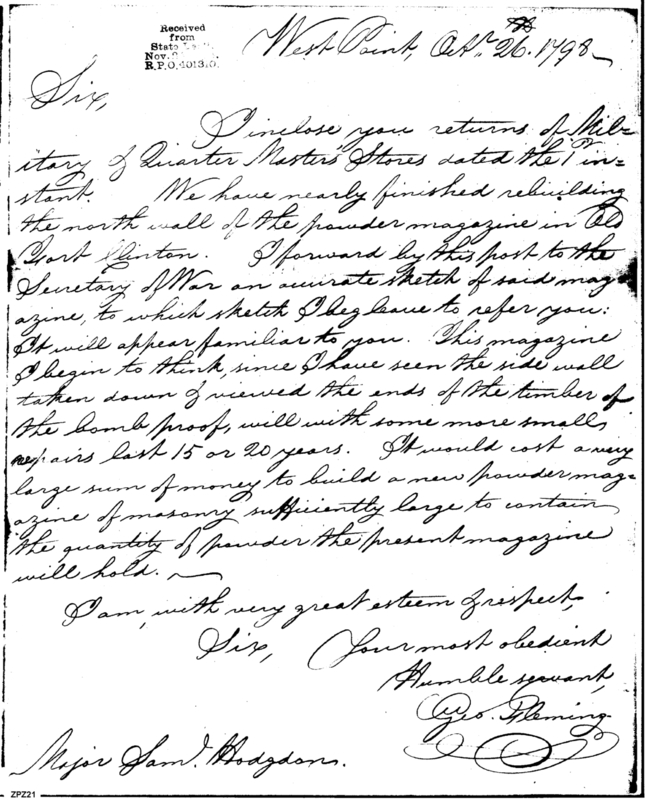 Received
from
State
Nov.
R.P.O. 401370.
West Point, Octr. 26. 1798
Sir,
I inclose you returns of Mil=
itary & Quarter Masters Stores dated the 1st in=
stant. We have nearly finished rebuilding
the north wall of the powder magazine in Old
Fort Clinton. I forward by this post to the
Secretary of War an accurate sketch of said mag=
azine, to which sketch I beg leave to refer you:
It will appear familiar to you. This magazine
I begin to think, since I have seen the side wall
taken down & viewed the ends of the timber of
the bomb proof, will with some more small
repairs last 15 or 20 years. It would cost a very
large sum of money to build a new powder mag=
azine of masonry sufficiently large to contain
the quantity of powder the present magazine
will hold.
I am, with very great esteem & respect,
Sir, Your most obedient
Humble servant,
Geo. Fleming
Major Saml. Hodgdon.
ZPZ21